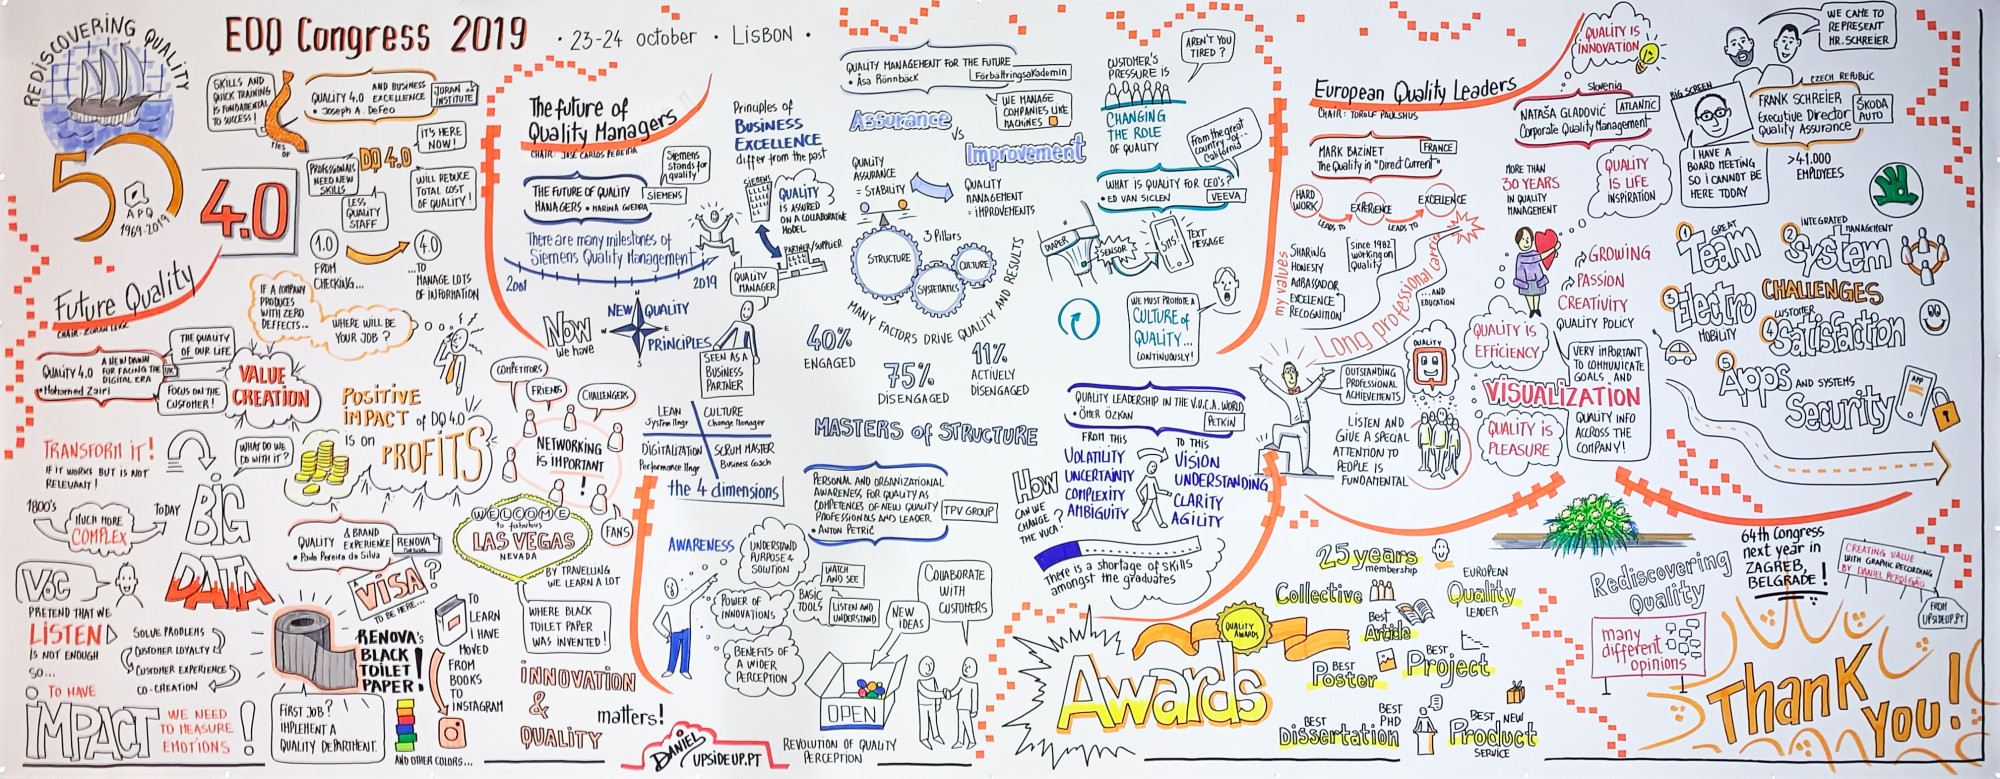 REDISCOVERING QUALITY
50
APQ
1969-2019
EOQ Congress 2019
· 23-24 october · LISBON ·
4.0
Future Quality
SKILLS AND
QUICK TRAINING
IS FUNDAMENTAL
TO SUCCESS!
TIES
OF
QUALITY 4.0
AND BUSINESS
EXCELLENCE
• Joseph A. DeFeo
JURAN
INSTITUTE
IT'S HERE
NOW!
PROFESSIONALS
NEED NEW
SKILLS
DQ 4.0
LESS
QUALITY
STAFF
WILL REDUCE
TOTAL COST
OF QUALITY!
1.0
4.0
FROM
CHECKING...
...TO
MANAGE LOTS
OF INFORMATION
IF A COMPANY
PRODUCES
WITH ZERO
DEFFECTS...
WHERE WILL BE
YOUR JOB?
QUALITY 4.0
A NEW DAWN
FOR FACING THE
DIGITAL ERA
UK
• Mohamed Zairi
THE QUALITY
OF OUR LIFE
FOCUS ON THE
CUSTOMER!
VALUE
CREATION
POSITIVE
IMPACT of DQ 4.0
is on
PROFITS
TRANSFORM IT!
IF IT WORKS BUT IS NOT
RELEVANT!
WHAT DO WE
DO WITH IT?
1800's
MUCH MORE
COMPLEX
TODAY
BIG
DATA
VoC
PRETEND THAT WE
LISTEN
IS NOT ENOUGH
SO...
TO HAVE
IMPACT
WE NEED
TO MEASURE
EMOTIONS
!
SOLVE PROBLEMS
CUSTOMER LOYALTY
CUSTOMER EXPERIENCE
CO-CREATION
QUALITY
& BRAND
EXPERIENCE
• Paulo Pereira da Silva
RENOVA
A VISA?
TO BE HERE...
RENOVA'S
BLACK
TOILET
PAPER!
FIRST JOB?
IMPLEMENT A
QUALITY DEPARTMENT.
AND OTHER COLORS...
TO
LEARN
I HAVE
MOVED
FROM
BOOKS
TO
INSTAGRAM
WELCOME
to fabulous
LAS VEGAS
NEVADA
BY TRAVELING
WE LEARN A LOT
WHERE BLACK
TOILET PAPER
WAS INVENTED!
INNOVATION
&
QUALITY
matters!
COMPETITORS
FRIENDS
CHALLENGERS
NETWORKING
IS IMPORTANT
!
FANS
The future of
Quality Managers
CHAIR: JOSÉ CARLOS PEREIRA
Siemens
stands for
quality
THE FUTURE OF QUALITY
MANAGERS
SIEMENS
There are many milestones of
Siemens Quality Management
2001
2019
NOW
we have
NEW QUALITY
PRINCIPLES
N
W
E
S
Principles of
BUSINESS
EXCELLENCE
differ from the past
SIEMENS
QUALITY
IS ASSURED
ON A COLLABORATIVE
MODEL
PARTNER/SUPPLIER
QUALITY
MANAGER
SEEN AS A
BUSINESS
PARTNER
LEAN
System Mngr
CULTURE
Change Manager
DIGITALIZATION
Performance Mngr
SCRUM MASTER
Business Coach
the 4 dimensions
QUALITY MANAGEMENT FOR THE FUTURE
• Åsa Rönnbäck
Förbättringsakademin
WE MANAGE
COMPANIES LIKE
MACHINES
Assurance
vs
Improvement
QUALITY
ASSURANCE
= STABILITY
QUALITY
MANAGEMENT
= IMPROVEMENTS
3 Pillars
STRUCTURE
SYSTEMATICS
CULTURE
MANY FACTORS DRIVE QUALITY AND RESULTS
40%
ENGAGED
75%
DISENGAGED
11%
ACTIVELY
DISENGAGED
MASTERS of STRUCTURE
PERSONAL AND ORGANIZATIONAL
AWARENESS FOR QUALITY AS
COMPETENCES OF NEW QUALITY
PROFESSIONALS AND LEADER
• ANTON PETRIČ
TPV GROUP
AWARENESS
UNDERSTAND
PURPOSE &
SOLUTION
POWER OF
INNOVATIONS
BENEFITS OF
A WIDER
PERCEPTION
WATCH
AND SEE
BASIC
TOOLS
LISTEN AND
UNDERSTAND
NEW
IDEAS
COLLABORATE
WITH
CUSTOMERS
OPEN
REVOLUTION OF QUALITY
PERCEPTION
DANIEL
UPSIDEUP.PT
CUSTOMER'S
PRESSURE IS
CHANGING
THE ROLE
OF QUALITY
AREN'T YOU
TIRED?
From the great
country of...
California
WHAT IS QUALITY FOR CEO'S?
• ED VAN SICLEN
VEEVA
DIAPER
SENSOR
SMS
TEXT
MESSAGE
WE MUST PROMOTE A
CULTURE of
QUALITY...
CONTINUOUSLY!
QUALITY LEADERSHIP IN THE V.U.C.A. WORLD
• ÖMER ÖZKAN
PETKIN
HOW
CAN WE
CHANGE
THE VUCA?
FROM THIS
VOLATILITY
UNCERTAINTY
COMPLEXITY
AMBIGUITY
TO THIS
VISION
UNDERSTANDING
CLARITY
AGILITY
THERE IS A SHORTAGE OF SKILLS
AMONGST THE GRADUATES
European Quality Leaders
MARK BAZINET
The Quality in "Direct Current"
FRANCE
HARD
WORK
LEADS TO
EXPERIENCE
LEADS TO
EXCELLENCE
my values
SHARING
HONESTY
AMBASSADOR
EXCELLENCE
RECOGNITION
Since 1982
working on
Quality
...AND
EDUCATION
Long professional carrier
OUTSTANDING
PROFESSIONAL
ACHIEVEMENTS
LISTEN AND
GIVE A SPECIAL
ATTENTION TO
PEOPLE IS
FUNDAMENTAL
QUALITY
QUALITY IS
INNOVATION
Slovenia
NATAŠA GLADOVIĆ
Corporate Quality Management
ATLANTIC
MORE THAN
30 YEARS
IN QUALITY
MANAGEMENT
QUALITY
IS LIFE
INSPIRATION
GROWING
PASSION
CREATIVITY
QUALITY POLICY
QUALITY IS
EFFICIENCY
VISUALIZATION
QUALITY IS
PLEASURE
VERY IMPORTANT
TO COMMUNICATE
GOALS AND
QUALITY INFO
ACROSS THE
COMPANY!
WE CAME TO
REPRESENT
MR. SCHREIER
CZECH REPUBLIC
BIG SCREEN
FRANK SCHREIER
Executive Director
Quality Assurance
ŠKODA
AUTO
I HAVE A
BOARD MEETING
SO I CANNOT BE
HERE TODAY
>41.000
EMPLOYEES
1 GREAT
Team
2 INTEGRATED
MANAGEMENT
System
CHALLENGES
3 Electro
MOBILITY
4 CUSTOMER
Satisfaction
5 Apps AND SYSTEMS
Security
APP
Awards
QUALITY
AWARDS
25 years
membership
Collective
EUROPEAN
Quality
LEADER
BEST
Article
BEST
Poster
BEST
Project
BEST
PHD
BEST
Dissertation
BEST NEW
Product
SERVICE
Rediscovering
Quality
many
different
opinions
64th Congress
next year in
ZAGREB,
BELGRADE!
CREATING VALUE
WITH GRAPHIC RECORDING
BY DANIEL PERDIGÃO
FROM
UPSIDEUP.PT
Thank
you!